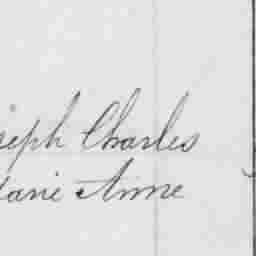 seph Charles
arie Anne